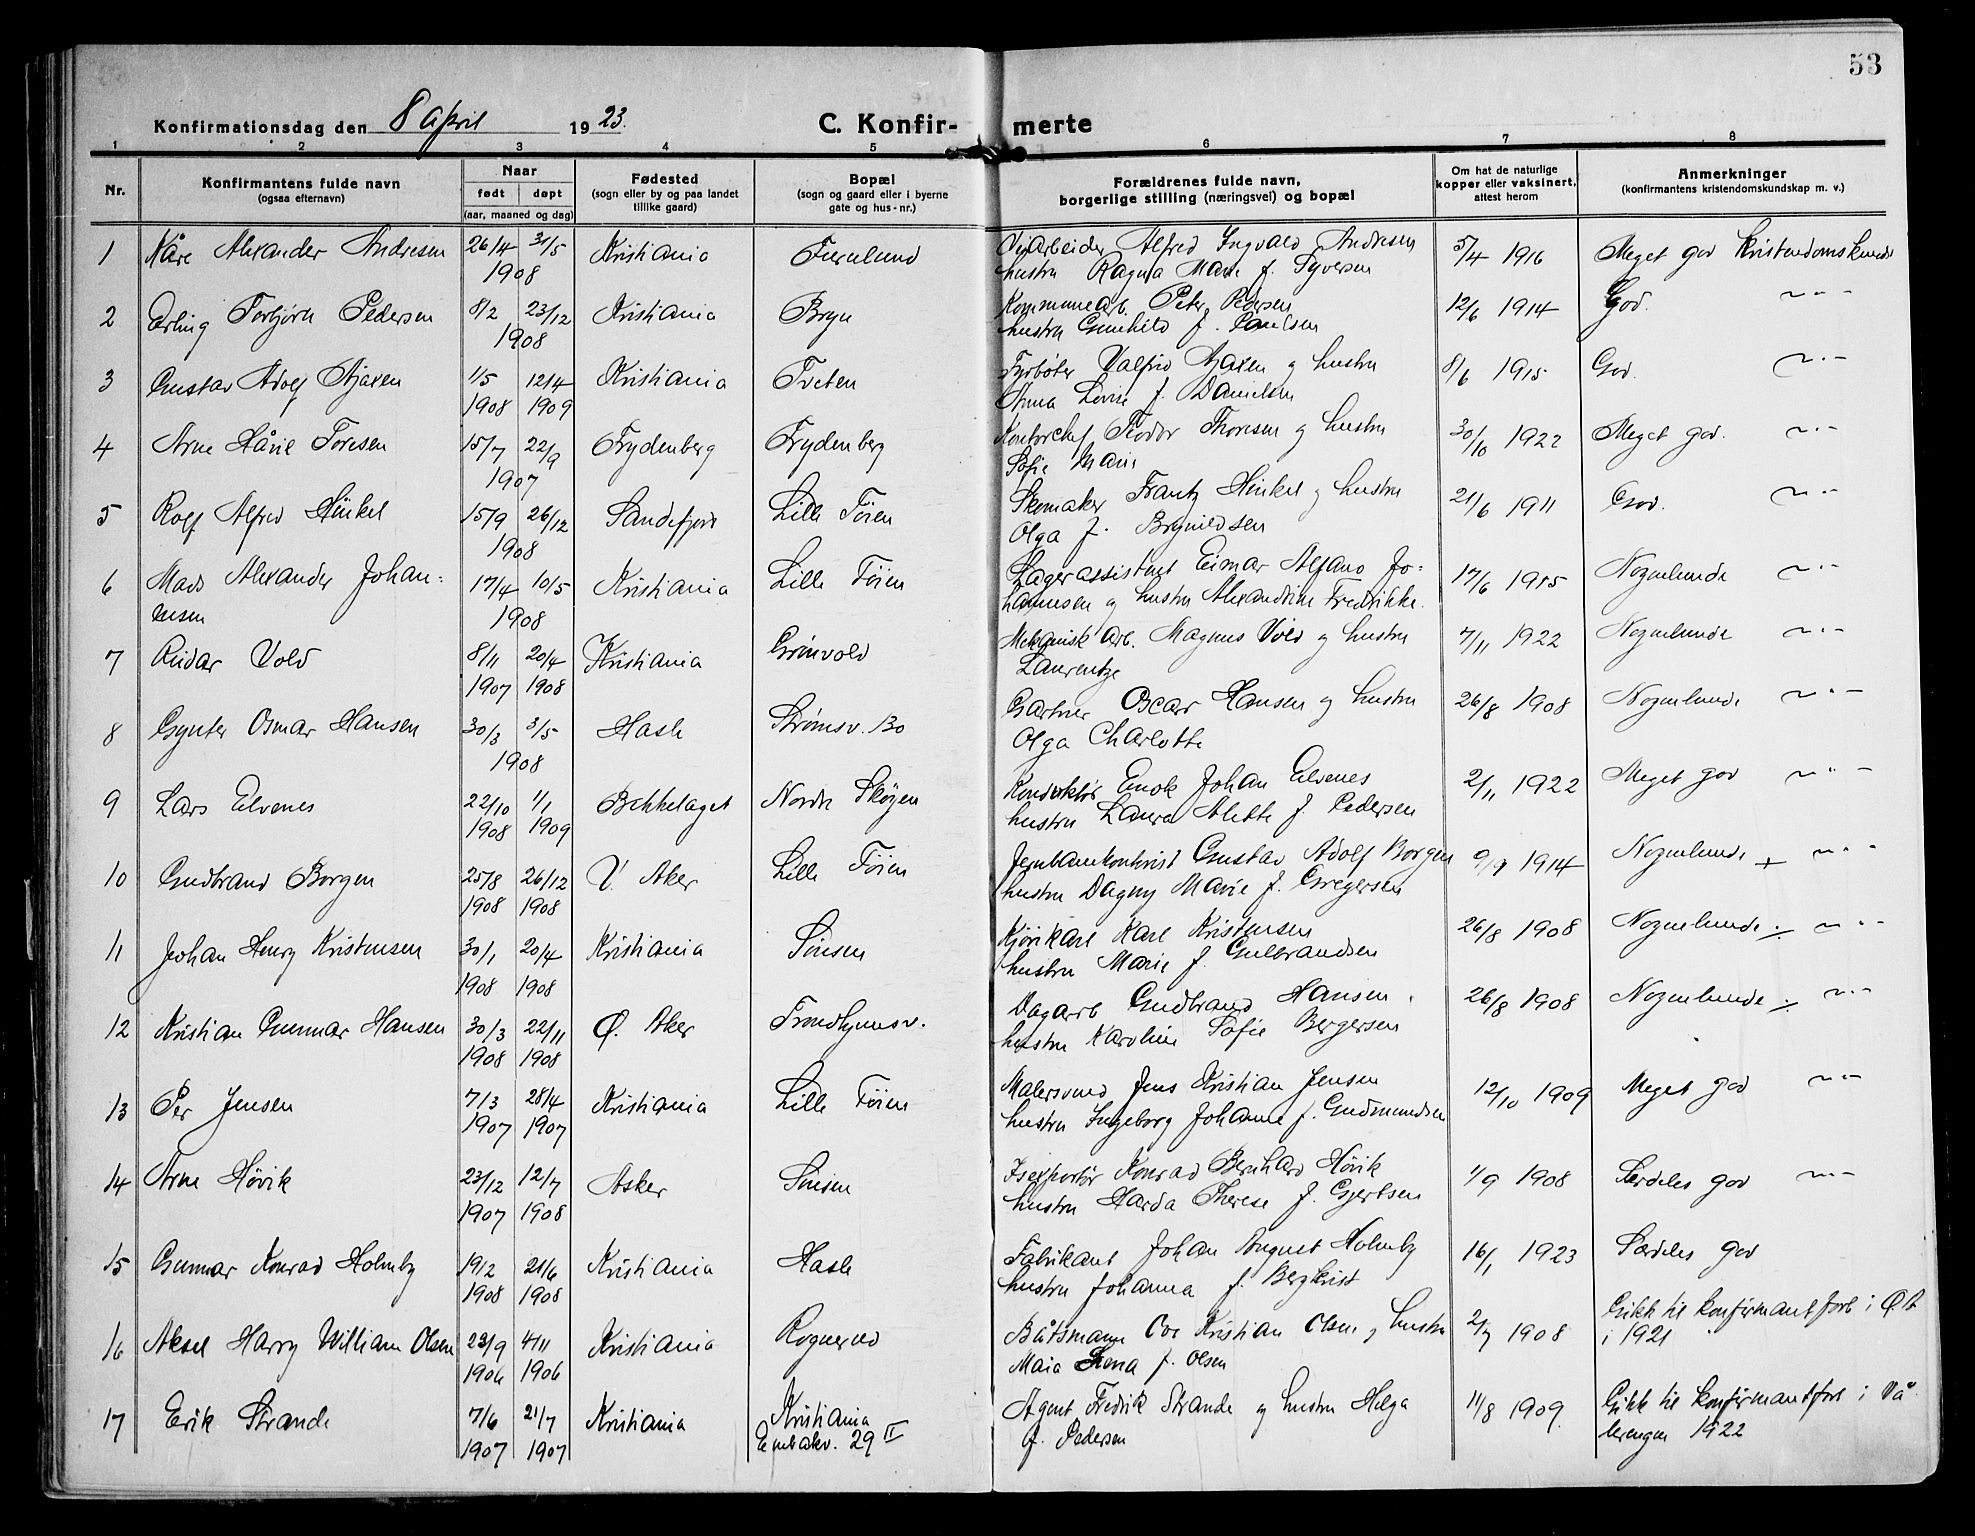 53
Konfirmationsdag den 8 April 1923.
C. Konfirmerte
1 2 3 4 5 6 7 8
Nr.
Konfirmantens fulde navn
(ogsaa efternavn)
Naar
født døpt
(aar, maaned og dag)
Fødested
(sogn eller by og paa landet
tillike gaard)
Bopæl
(sogn og gaard eller i byerne
gate og hus-nr.)
Forældrenes fulde navn,
borgerlige stilling (næringsvei) og bopæl
Om hat de naturlige
kopper eller vaksinert,
attest herom
Anmerkninger
(konfirmantens kristendomskundskap m. v.)
1 Kåre Alexander Andresen 26/4 31/5 Kristiania Furulund Veiarbeider Alfred Ingvald Andresen 5/4 1916 Meget god kristendomskunds
1908 hustru Ragna Marie f. Syversen
2 Erling Torbjørn Pedersen 8/2 23/12 Kristiania Bryn Kommunearb. Peter Pedersen 12/6 1914 God. — " —
1908 hustru Gunhild f. Paulsen
3 Gustav Adolf Ajaxen 1/5 12/4 Kristiania Tveten Fyrbøter Valfrid Ajaxen og hustru 8/6 1915 God. — " —
1908 1909 Anna Lovise f. Danielsen
4 Arne Håvie Toresen 15/7 22/9 Frydenberg Frydenberg Kontorchef Teodor Thoresen og hustru 30/10 1922 Meget god. — " —
1907 Sofie Marie
5 Rolf Alfred Hinkel 15/9 26/12 Sandefjord Lille Tøien Skomaker Frantz Hinkel og hustru 21/6 1911 God. — " —
1908 Olga f. Brynildsen
6 Mads Alexander Johan= 17/4 10/5 Kristiania Lille Tøien Lagerassistent Eimar Alfano Jo= 17/6 1915 Nogenlunde — " —
nesen 1908 hannesen og hustru Alexandrine Fredrikke.
7 Reidar Vold 8/11 20/4 Kristiania Grönvold Mekanisk arb. Magnus Vold og hustru 7/11 1922 Nogenlunde — " —
1907 1908 Laurentze
8 Gynter Osmar Hansen 30/3 3/5 Hasle Strømsv. 130 Gartner Oscar Hansen og hustru 26/8 1908 Nogenlunde — " —
1908 Olga Charlotte
9 Lars Elvenes 22/10 1/1 Bekkelaget Nordre Skøyen Konduktör Enok Johan Elvenes 2/11 1922 Meget god — " —
1908 1909 hustru Laura Alette f. Pedersen
10 Gudbrand Borgen 25/8 26/12 V. Aker Lille Tøien Jernbanekontorist Gustav Adolf Borgen 9/9 1914 Nogenlunde + — " —
1908 1908 hustru Dagny Marie f. Gregersen
11 Johan Henry Kristensen 30/1 20/4 Kristiania Sinsen Kjørekarl Karl Kristensen 26/8 1908 Nogenlunde ÷ — " —
1908 1908 hustru Marie f. Gulbrandsen
12 Kristian Gunnar Hansen 30/3 22/11 Ø. Aker Trondhjemsv. Dagarb Gudbrand Hansen. 26/8 1908 Nogenlunde ÷ — " —
1908 1908 hustru Karoline Sofie Bergersen
13 Per Jensen 7/3 28/4 Kristiania Lille Tøien Malersvend Jens Kristian Jensen 12/10 1909 Meget god — " —
1907 1907 hustru Ingeborg Johanne f. Gudmundsen
14 Arne Høvik 23/12 12/7 Asker Sinsen Iseksportör Konrad Bernhard Høvik 1/9 1908 Særdeles god — " —
1907 1908 hustru Harda Therese f. Gjertsen
15 Gunnar Konrad Holmby 19/2 21/6 Kristiania Hasle Fabrikant Johan August Holmby 16/1 1923 Særdeles god
1908 1908 hustru Johanna f. Bergkvist
16 Aksel Harry William Olsen 23/9 4/11 Kristiania Rognerud Båtsmann Ove Kristian Olsen og hustru 2/7 1908 Gikk til konfirmantforb i Ø A
1906 1906 Maia Lena f. Olsen i 1921
17 Erik Strande 7/6 21/7 Kristiania Kristiania Agent Fredrik Strande og hustru Helga 11/8 1909. Gikk til konfirmantforb i Vå
1907 1907 29 II f. Pedersen lerengen 1922